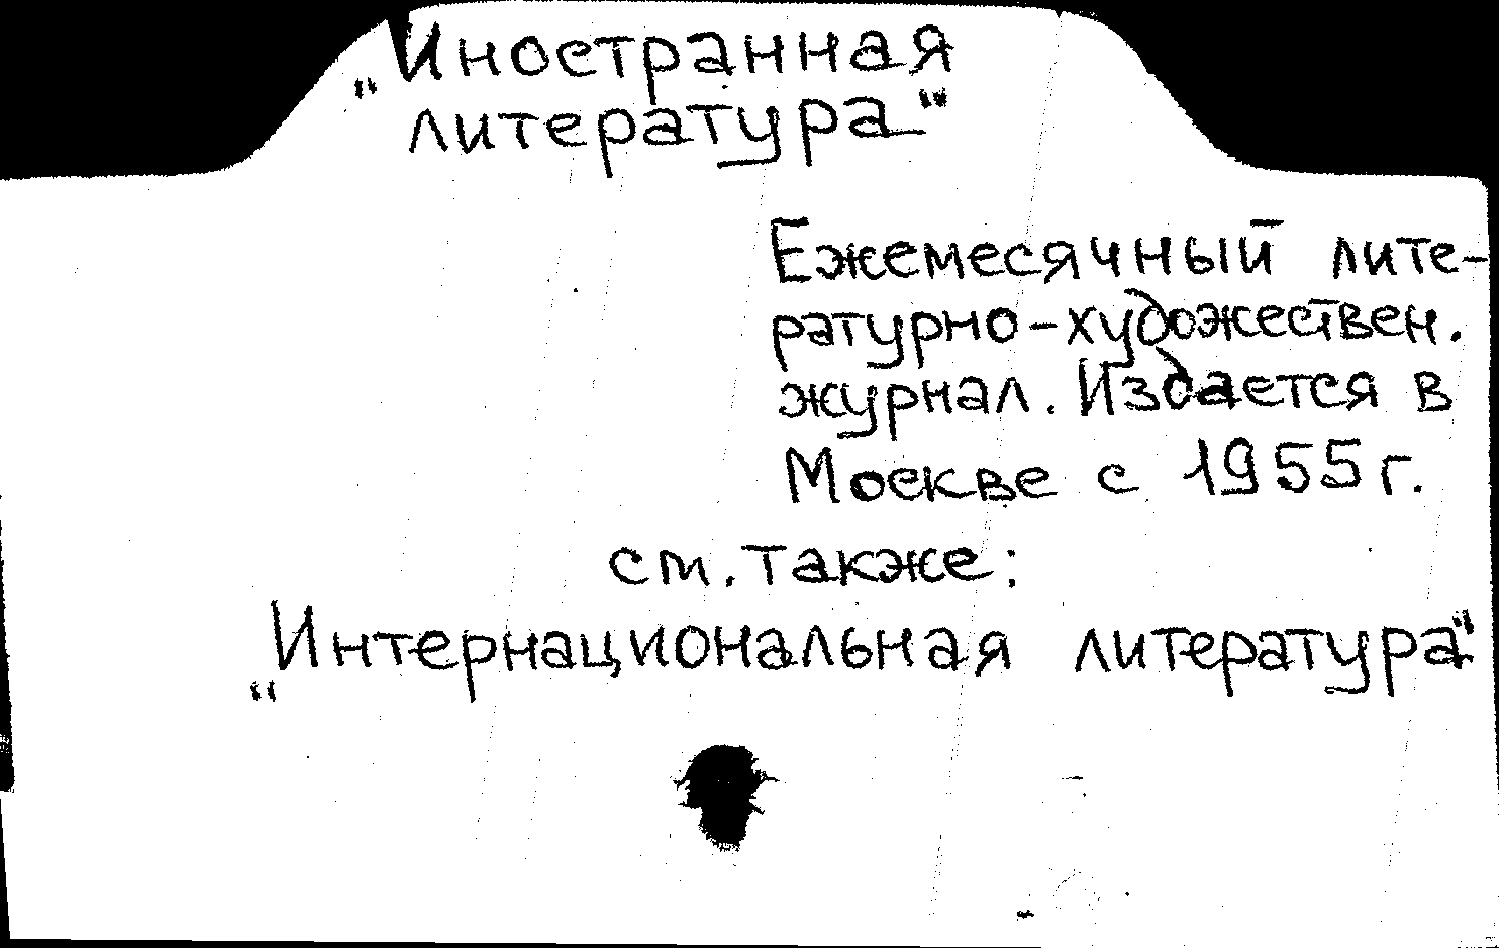 „Иностранная
литература“
Ежемесячный лите-
ратурно-художествен.
журнал. Издается в
Москве с 1955 г.
см. также:
„Интернациональная литература“